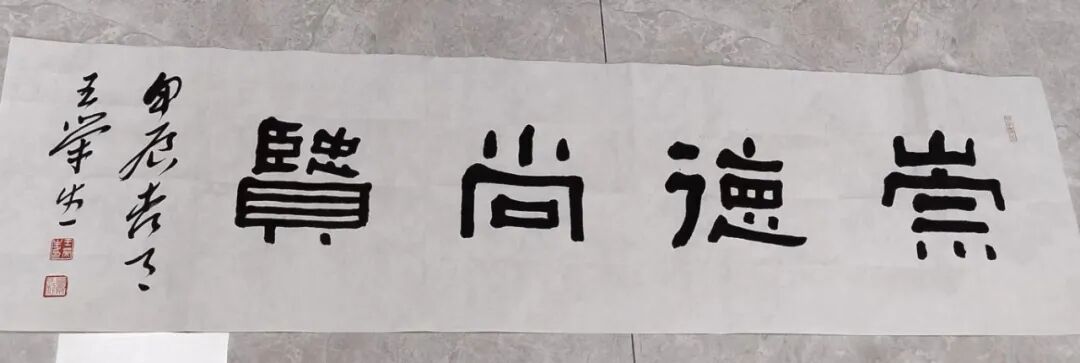 崇德尚賢
甲辰春月
王榮生